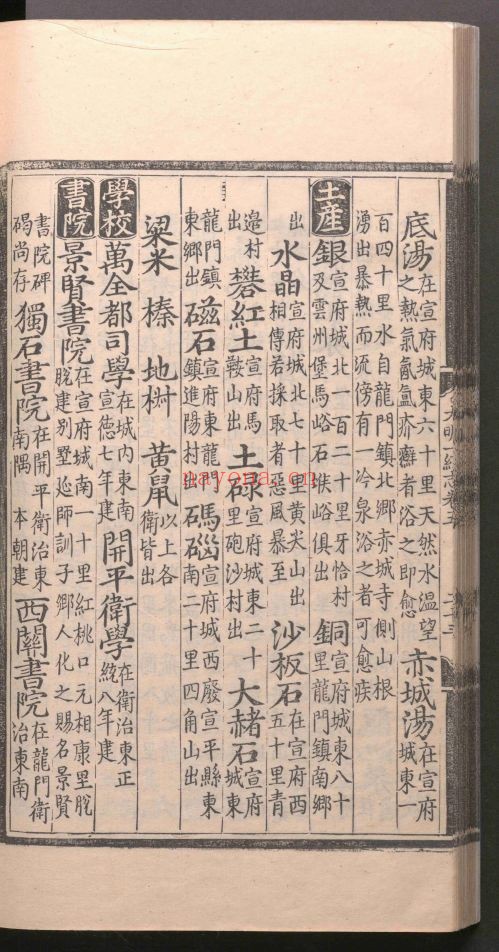 底湯在宣府城東六十里天然水溫望之熱氣氤氳疥癬者浴之即愈 赤城湯在宣府城東一
百四十里水自龍門鎮北鄉赤城寺側山根湧出暴熱而流傍有一冷泉浴之者可愈疾
土產 銀宣府城北一百二十里牙恰村及雲州堡馬峪石峽峪俱出 銅宣府城東八十里龍門鎮南鄉
出 水晶宣府城北七十里黃尖山出相傳若採取者惡風暴至 沙板石在宣府西五十里青
邉村出 礬紅土宣府馬鞍山出 土碌宣府城東二十里砲沙村出 大赭石宣府城東
龍門鎮東鄉出 磁石宣府東龍門鎮進陽村出 碼碯宣府城西廢宣平縣東南二十里四角山出
粱米 榛 地樹 黃鼠以上各衛皆出
學校 萬全都司學在城內東南宣德七年建 開平衛學在衛治東正統八年建
書院 景賢書院在宣府城南一十里紅桃口元相康里脫脫建別墅延師訓子鄉人化之賜名景賢
書院碑碣尚存 獨石書院在開平衛治東南隅本朝建 西關書院在龍門衛治東南
nayona.cn